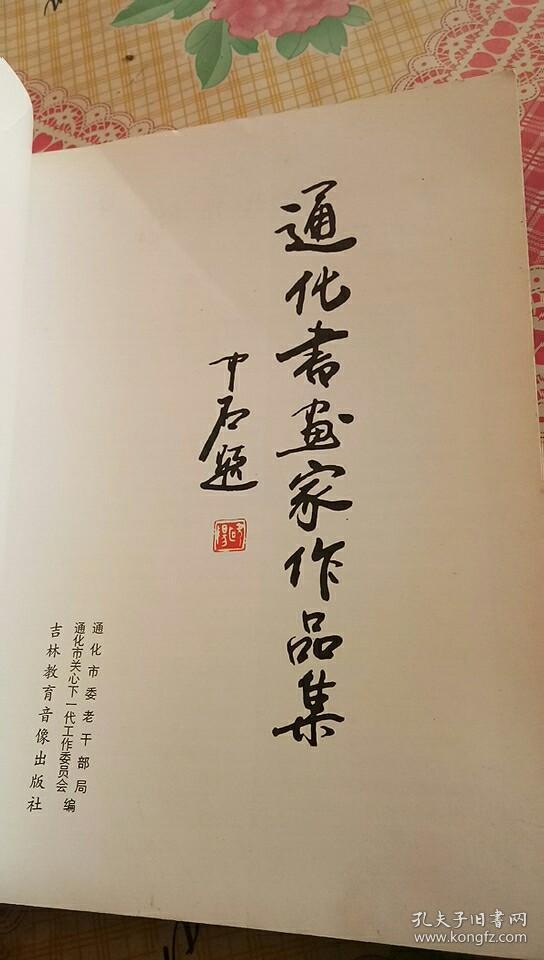 通化书画家作品集
中石题
通化市委老干部局
通化市关心下一代工作委员会 编
吉林教育音像出版社
孔夫子旧书网
www.kongfz.com